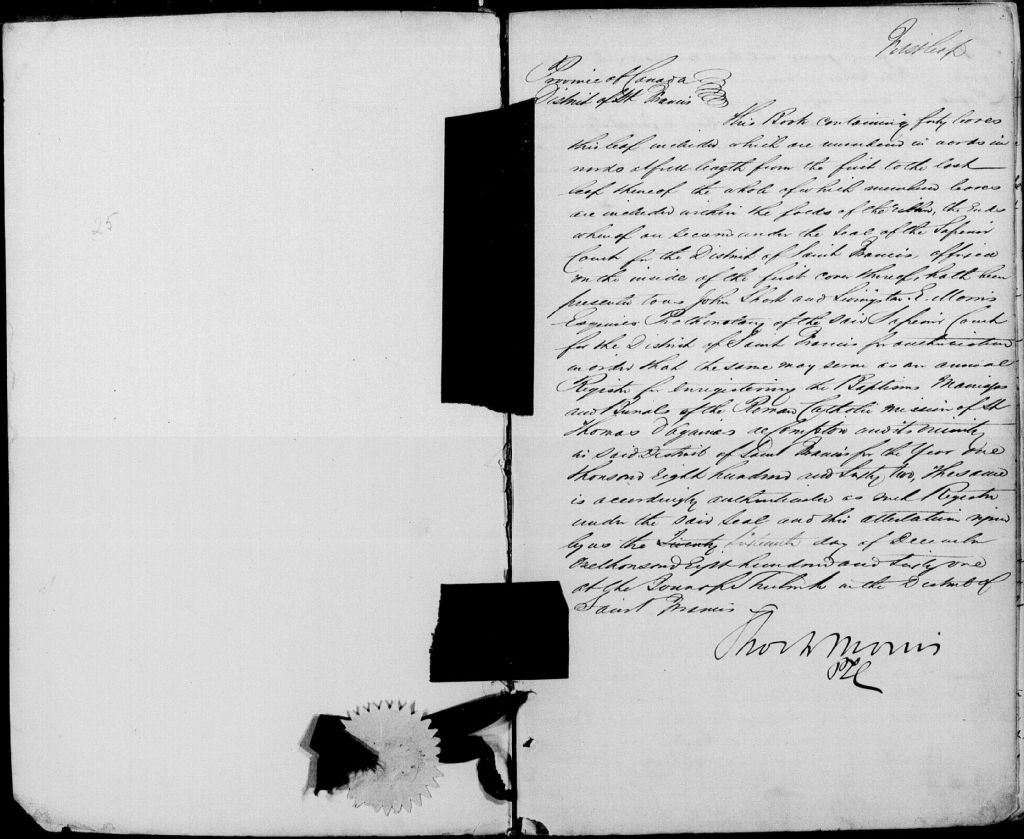 25
First leaf
Province of Canada
District of St Francis
This Book containing forty leaves
this leaf included which are numbered in words in
words at full length from the first to the last
leaf thereof the whole of which numbered leaves
are included within the folds of the ribbon, the Ends
whereof are secured under the Seal of the Superior
Court for the District of Saint Francis, affixed
on the inside of the first cover thereof, hath been
presented to us John Short and Livingston E. Morris
Esquires Prothonotary of the said Superior Court
for the District of Saint Francis for authentication
in order that the same may serve as an annual
Register for Enregistering the Baptisms Marriages
and Burials of the Roman Catholic mission of St
Thomas D'Aquinas of Compton and its vicinity
in said District of Saint Francis for the Year One
thousand Eight hundred and Sixty two, the same
is accordingly authenticated as such Register
under the said Seal and this attestation signed
by us the Twenty sixteenth day of December
One thousand Eight hundred and Sixty one
at the Town of Sherbrooke in the District of
Saint Francis
Short & Morris
PSC